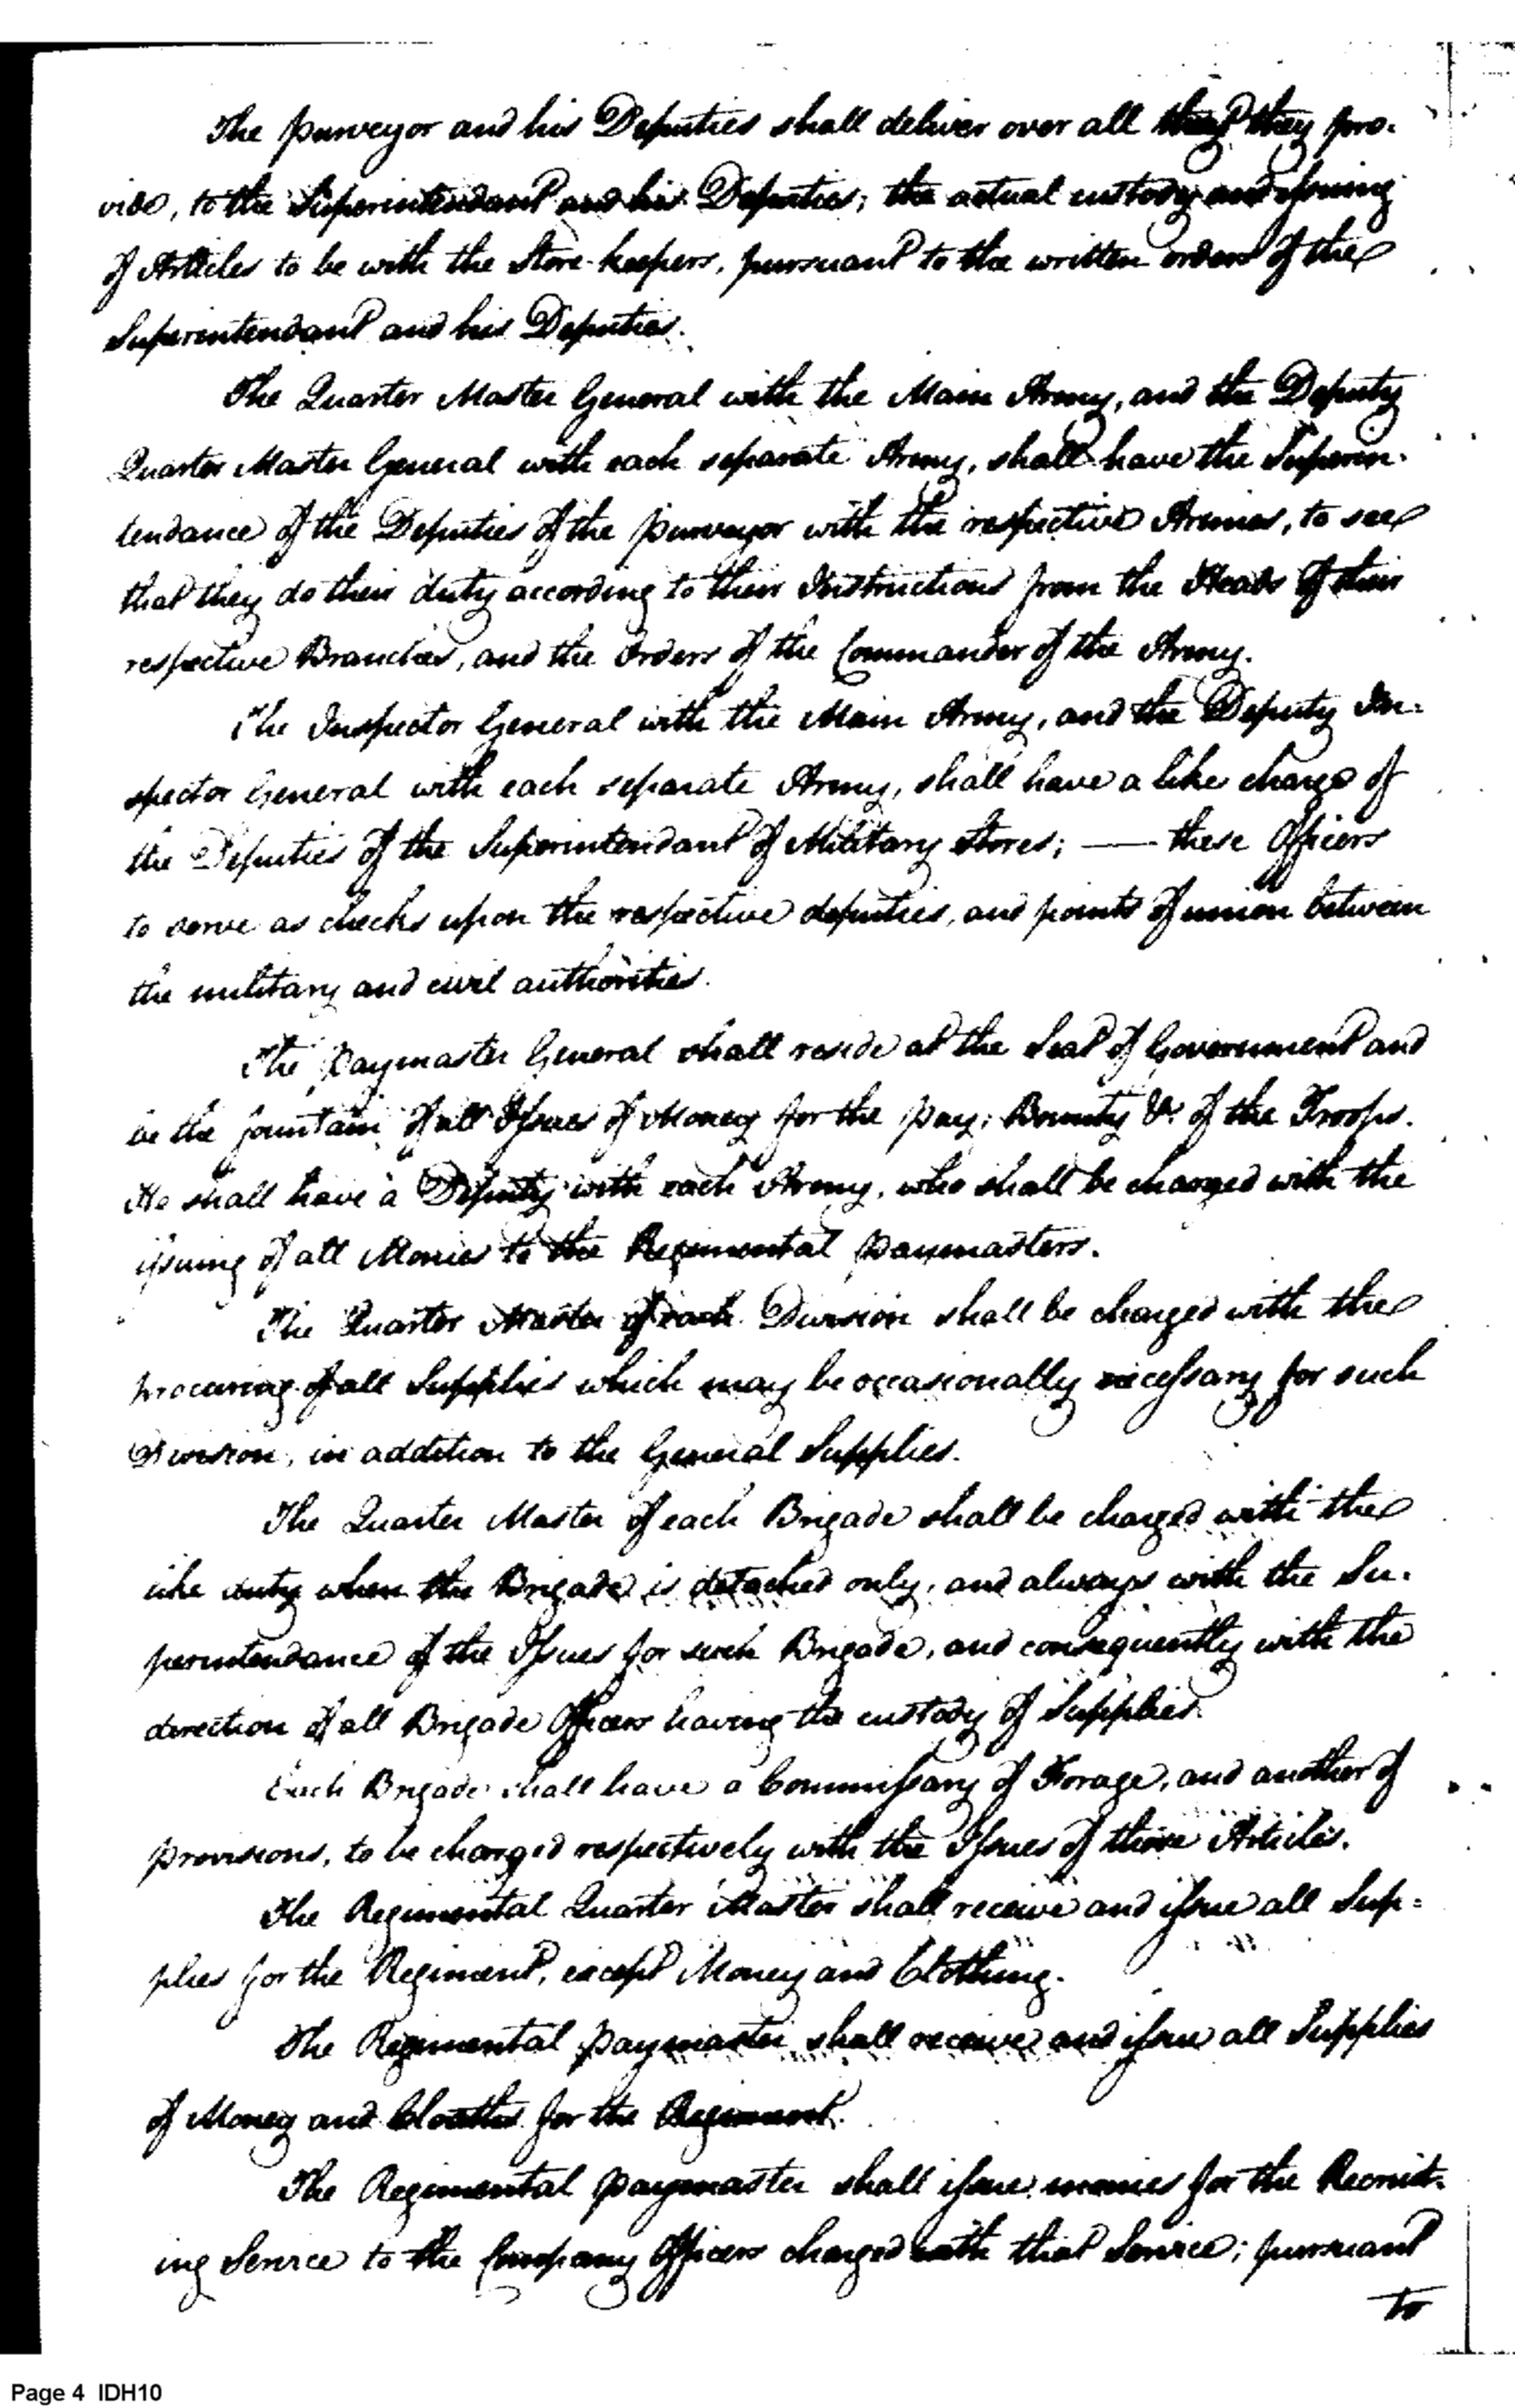 The Purveyor and his Deputies shall deliver over all they pro-
vide, to the Superintendant and his Deputies; the actual custody and issuing
of Articles to be with the Store-keepers, pursuant to the written orders of the
Superintendant and his Deputies.
The Quarter Master General with the Main Army, and the Deputy
Quarter Master General with each separate Army, shall have the Superin-
tendance of the Deputies of the Purveyor with the respective Armies, to see
that they do their duty according to their Instructions from the Heads of their
respective Branches, and the Orders of the Commander of the Army.
The Inspector General with the Main Army, and the Deputy In-
spector General with each separate Army, shall have a like charge of
the Deputies of the Superintendant of Military Stores; — these Officers
to serve as checks upon the respective deputies, and points of union between
the military and civil authorities.
The Paymaster General shall reside at the Seat of Government and
be the fountain of all Issues of Money for the Pay, Bounty &c of the Troops.
He shall have a Deputy with each Army, who shall be charged with the
issuing of all Monies to the Regimental Paymasters.
The Quarter Master of each Division shall be charged with the
procuring of all Supplies which may be occasionally necessary for such
Division, in addition to the General Supplies.
The Quarter Master of each Brigade shall be charged with the
like duty when the Brigade is detached only, and always with the Su-
perintendance of the Issues for such Brigade, and consequently with the
direction of all Brigade Officers having the custody of Supplies.
Each Brigade shall have a Commissary of Forage, and another of
provisions, to be charged respectively with the Issues of those Articles.
The Regimental Quarter Master shall receive and issue all Sup=
plies for the Regiment, except Money and Clothing.
The Regimental Paymaster shall receive and issue all Supplies
of Money and Cloaths for the Regiment.
The Regimental Paymaster shall issue monies for the Recruit-
ing Service to the Company Officers charged with that Service; pursuant
to
Page 4 IDH10